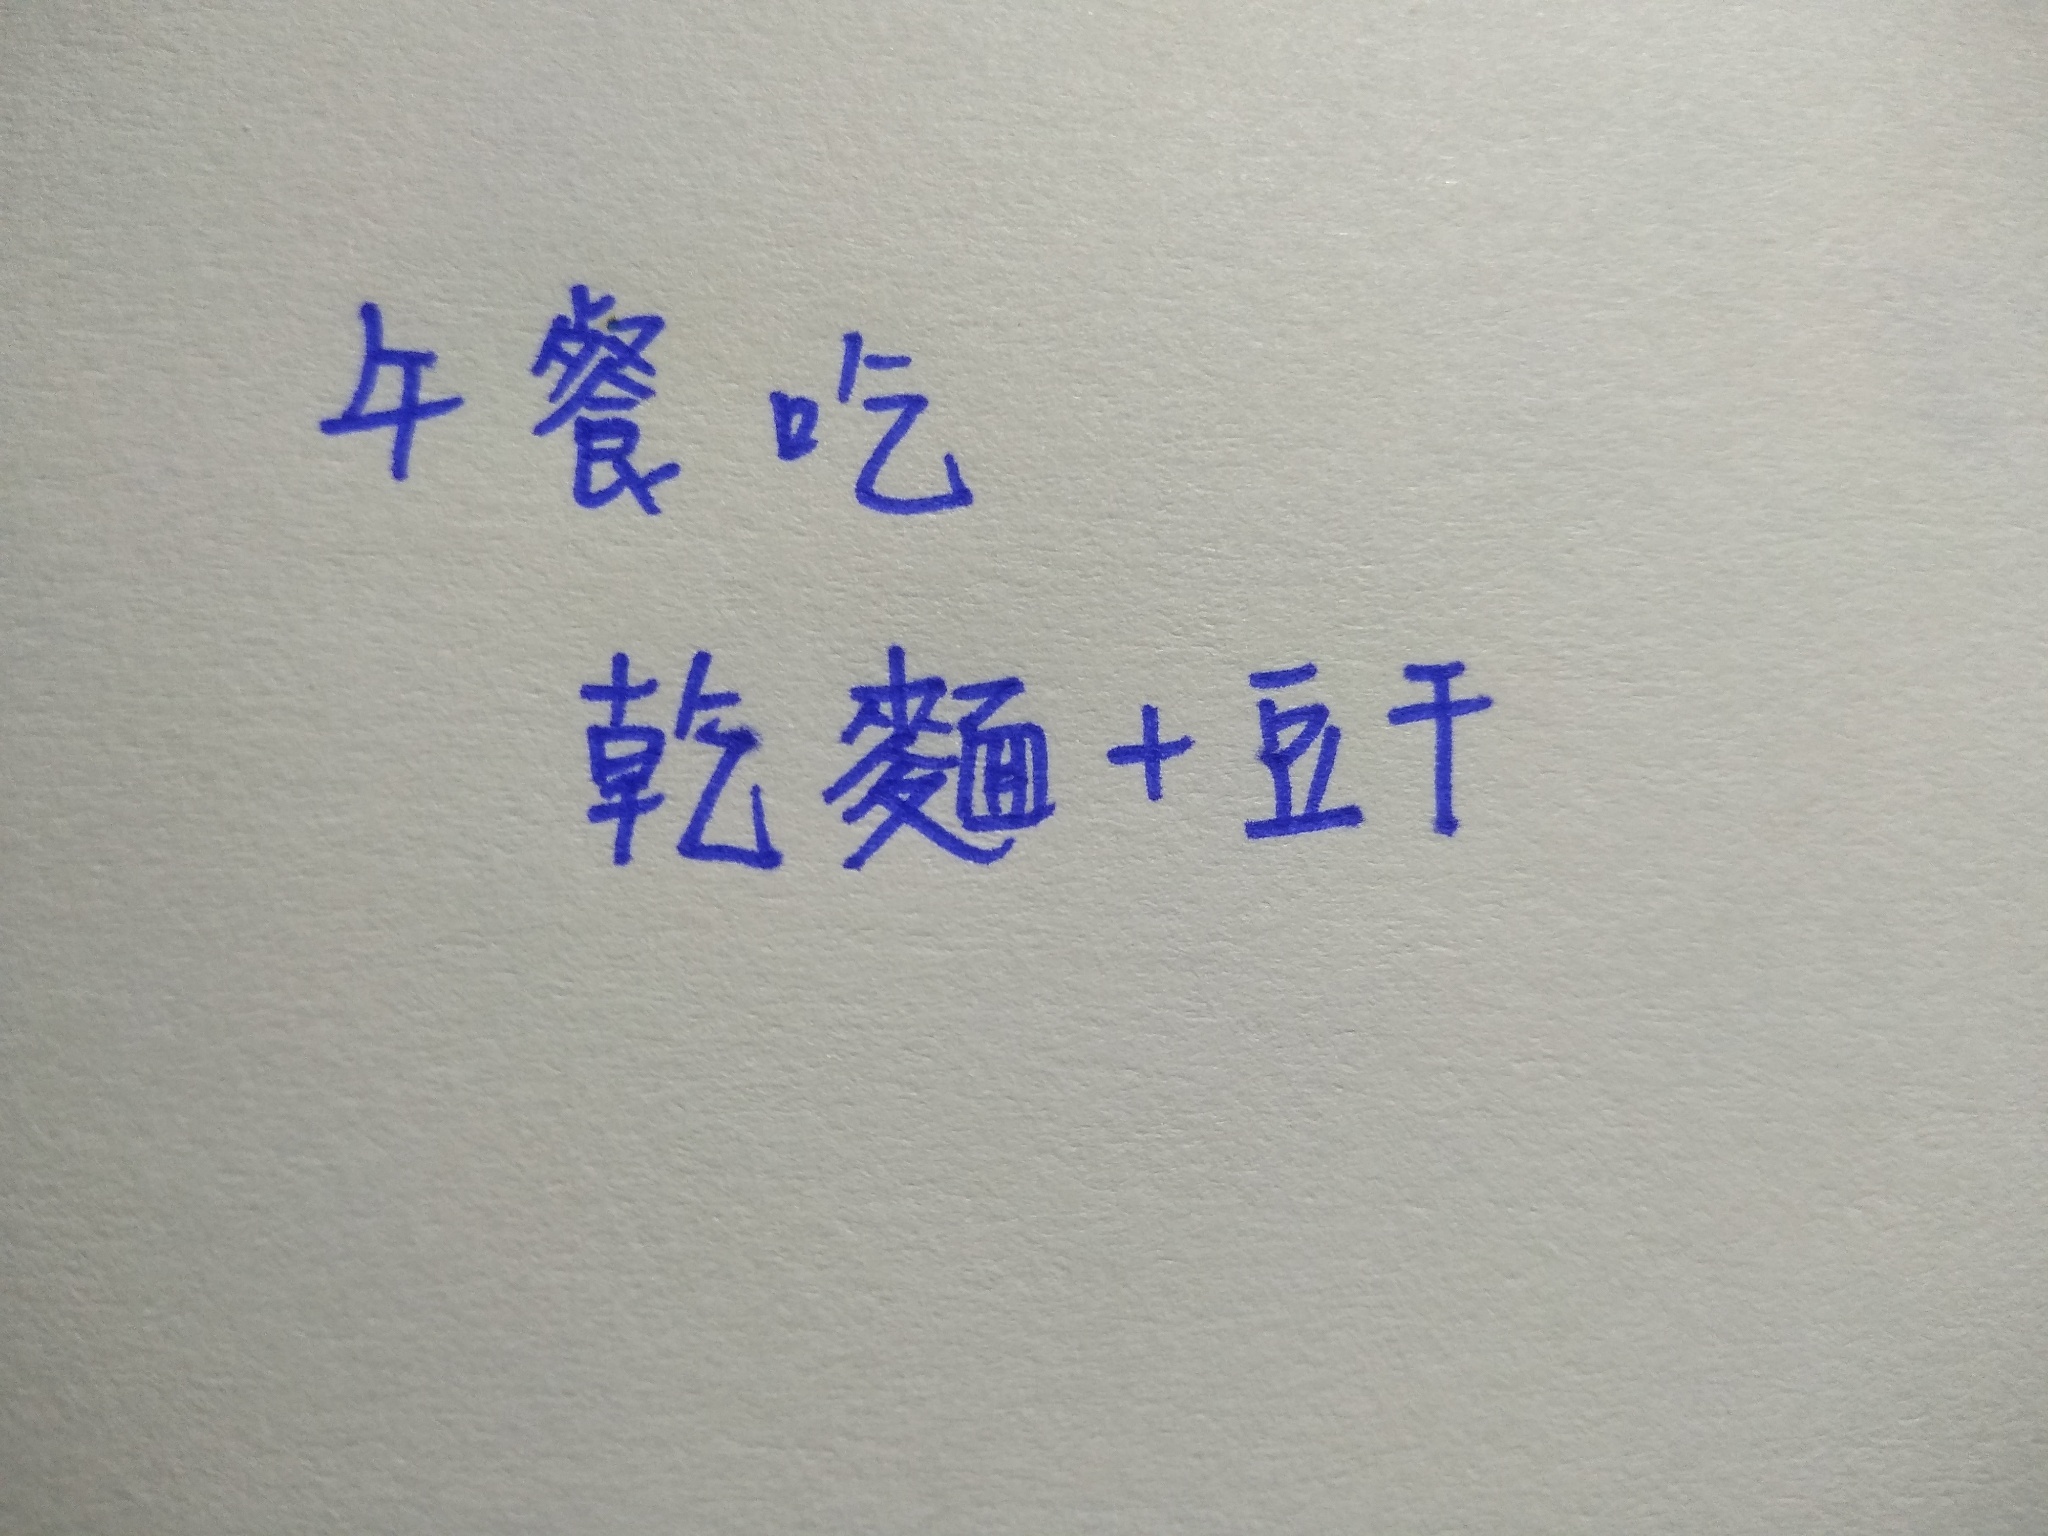 午餐吃
乾麵+豆干